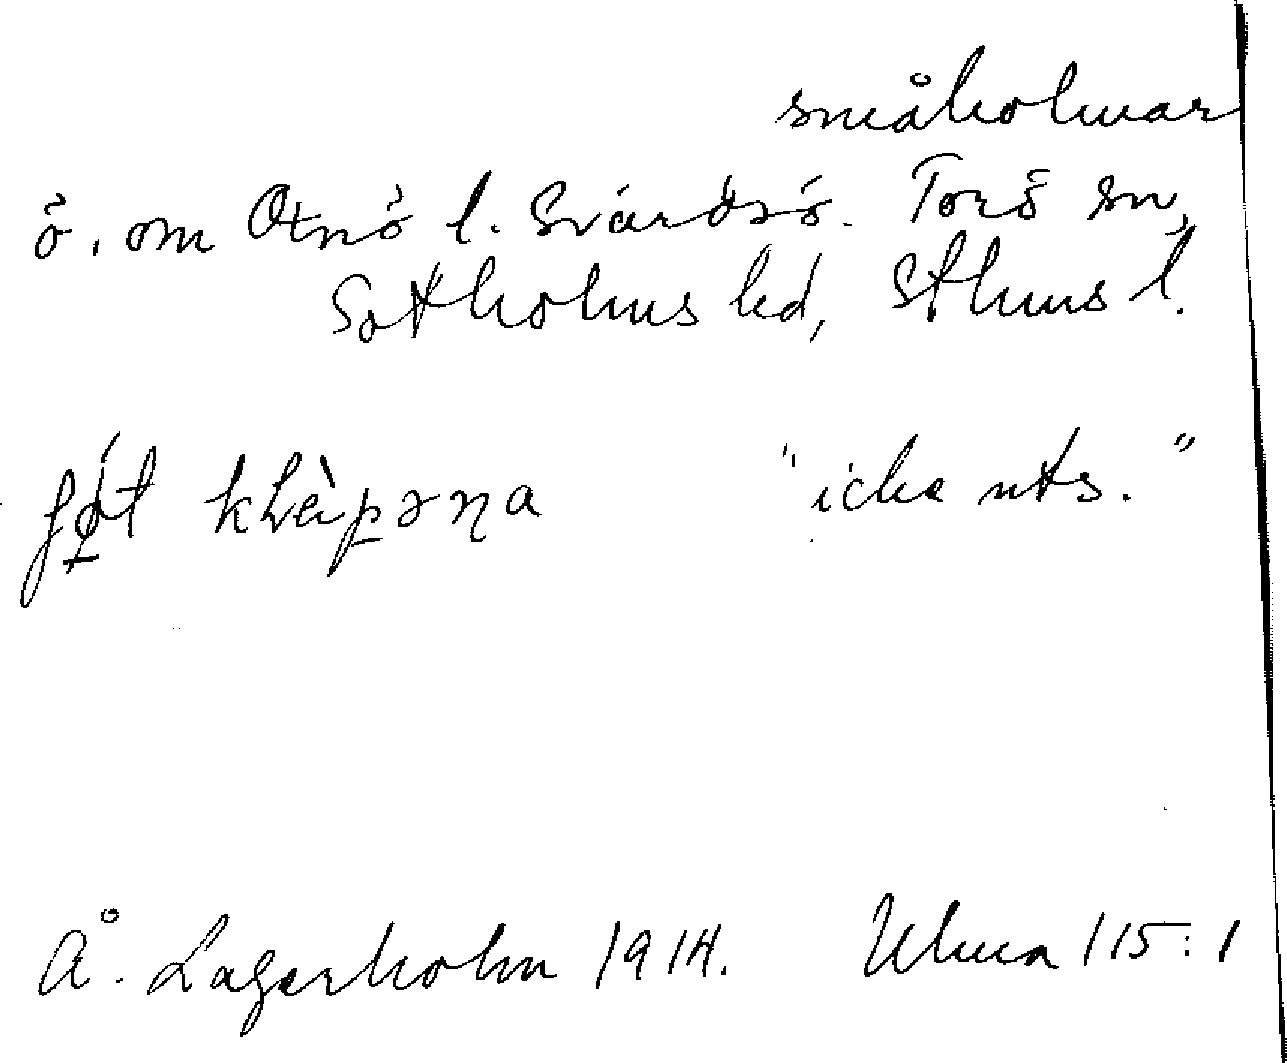 småholmar
ö. om Otnö l. Svärdsö. Torö sn,
Sotholms hd, Sthms l.
klèpərṇa "icke uts."
Å. Lagerholm 1914. Ulma 115:1